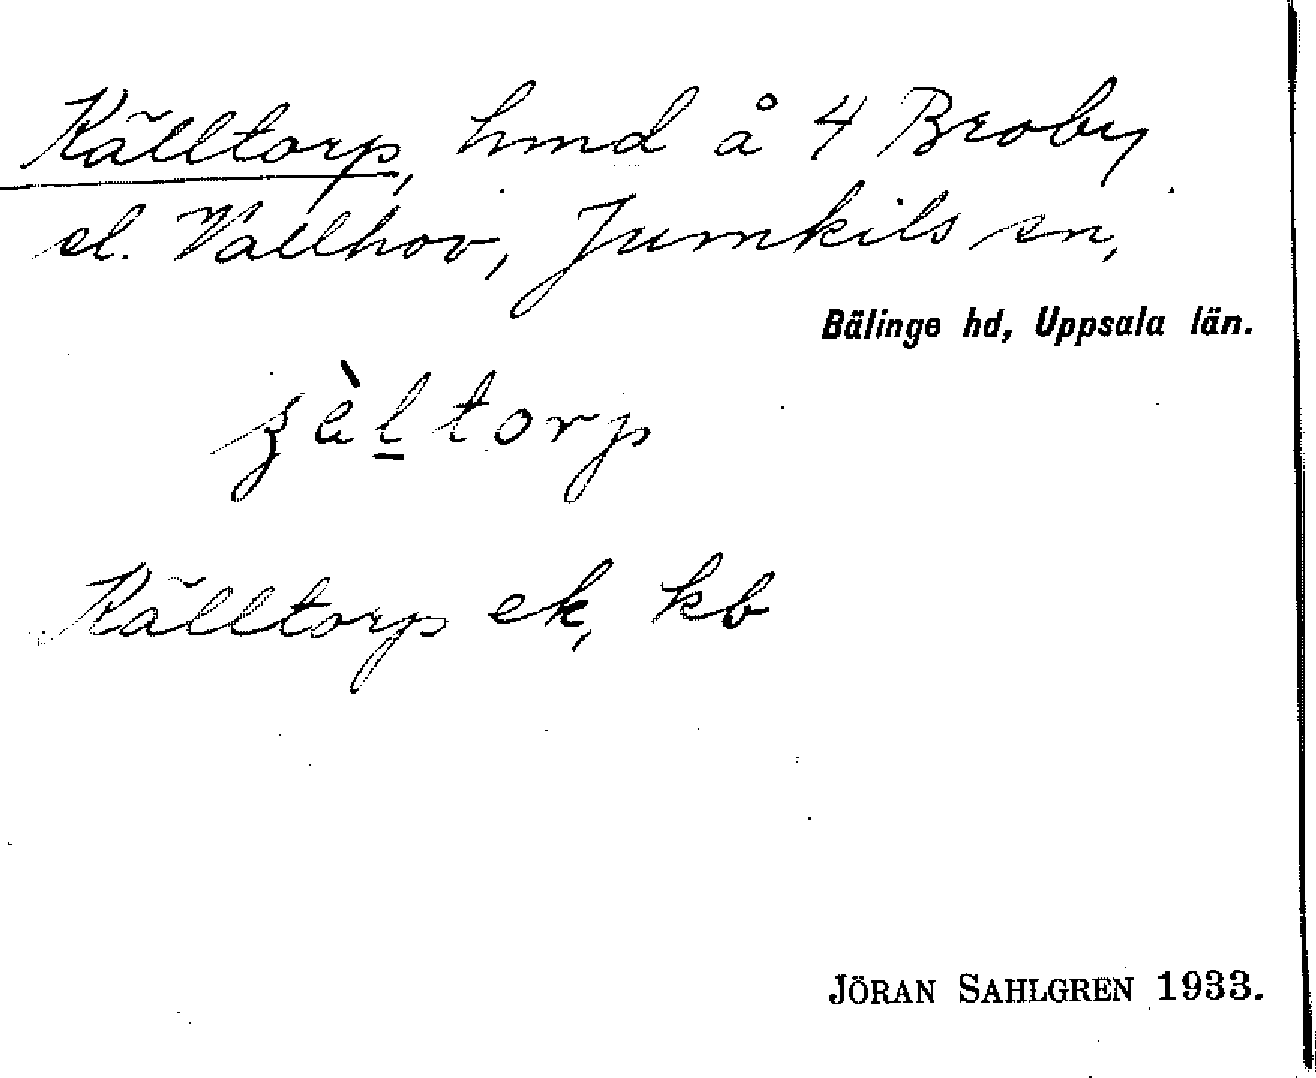 Källtorp, hmd å 4 Broby
el. Vallhov, Jumkils sn,
Bälinge hd, Uppsala län.
Källtorp ek, kb
JÖRAN SAHLGREN 1933.